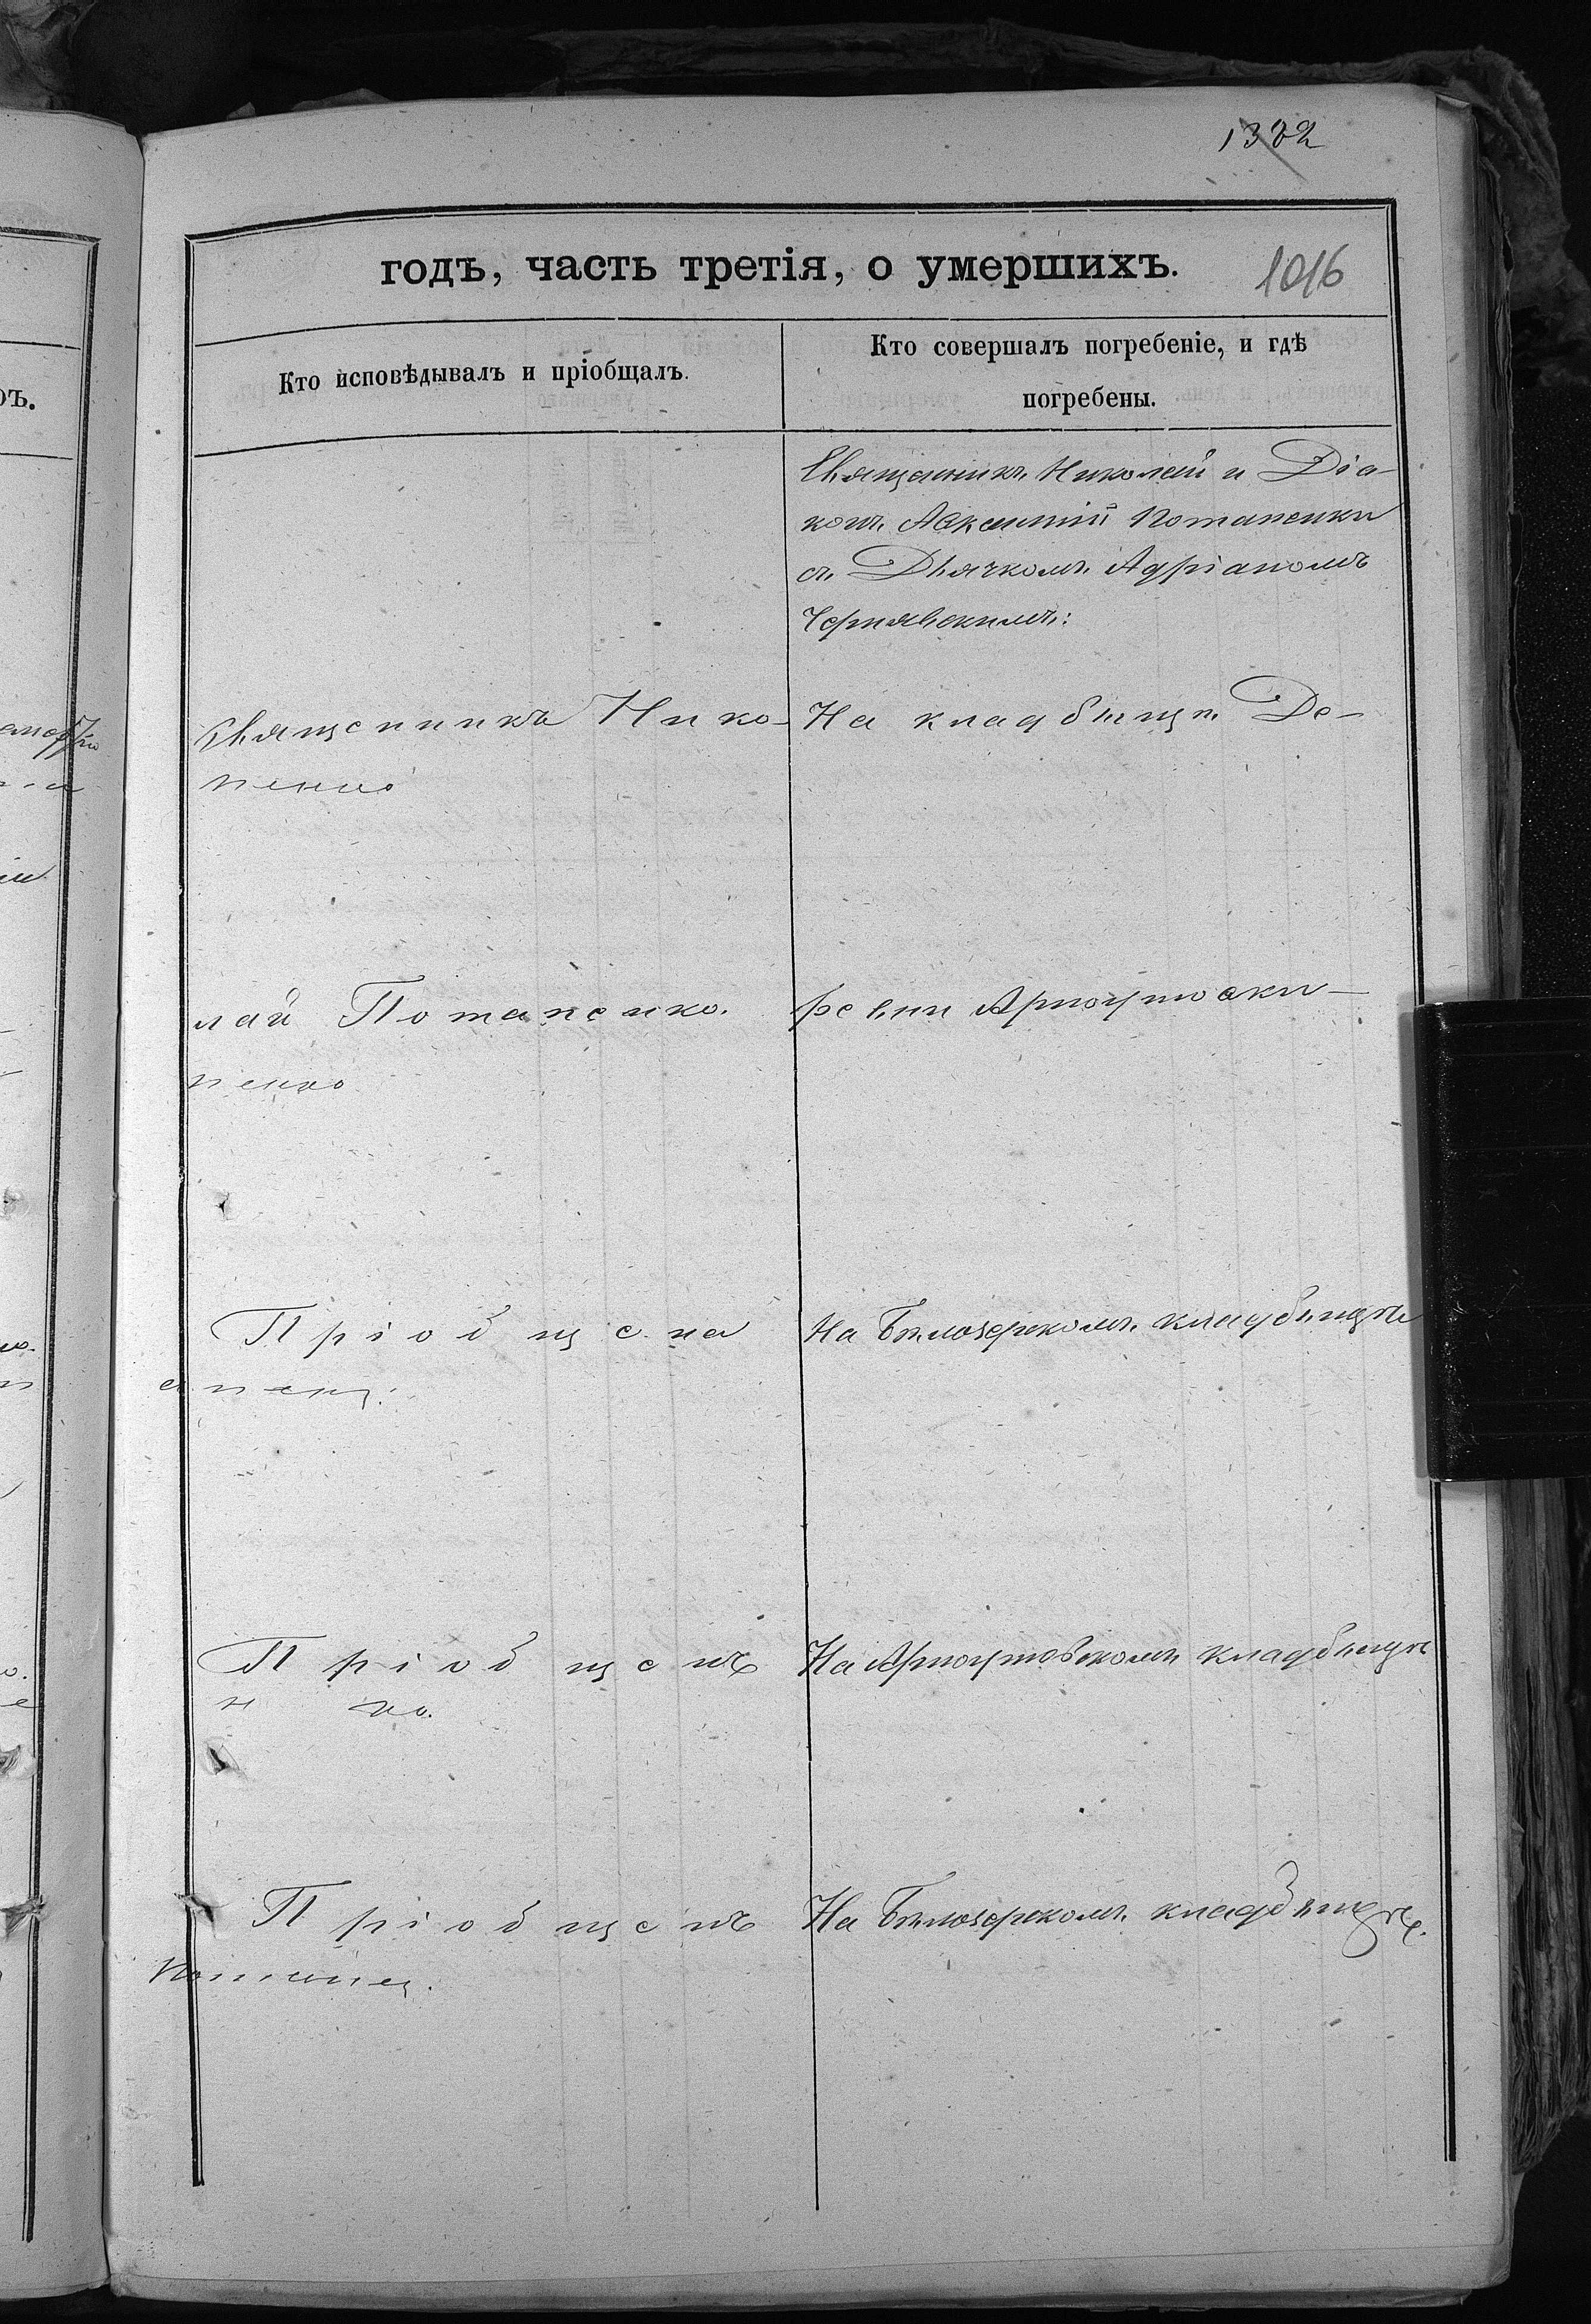 1382
годъ, часть третія, о умершихъ.
1016
Кто исповѣдывалъ и пріобщалъ.
Кто совершалъ погребеніе, и гдѣ
погребены.
Священникъ Николай и Діа-
конъ Авксентій Потапенки
съ Дьячкомъ Адріаномъ
Чернявскимъ:
Священникъ Нико-
пенко
На кладбищѣ Де-
лай Потапенко.
пенко
ревни Арноутовки
Пріобщена
На Бѣлозерскомъ кладбищѣ
Пріобщенъ
На Арноутовскомъ кладбищѣ
Пріобщенъ
На Бѣлозерскомъ кладбищѣ.